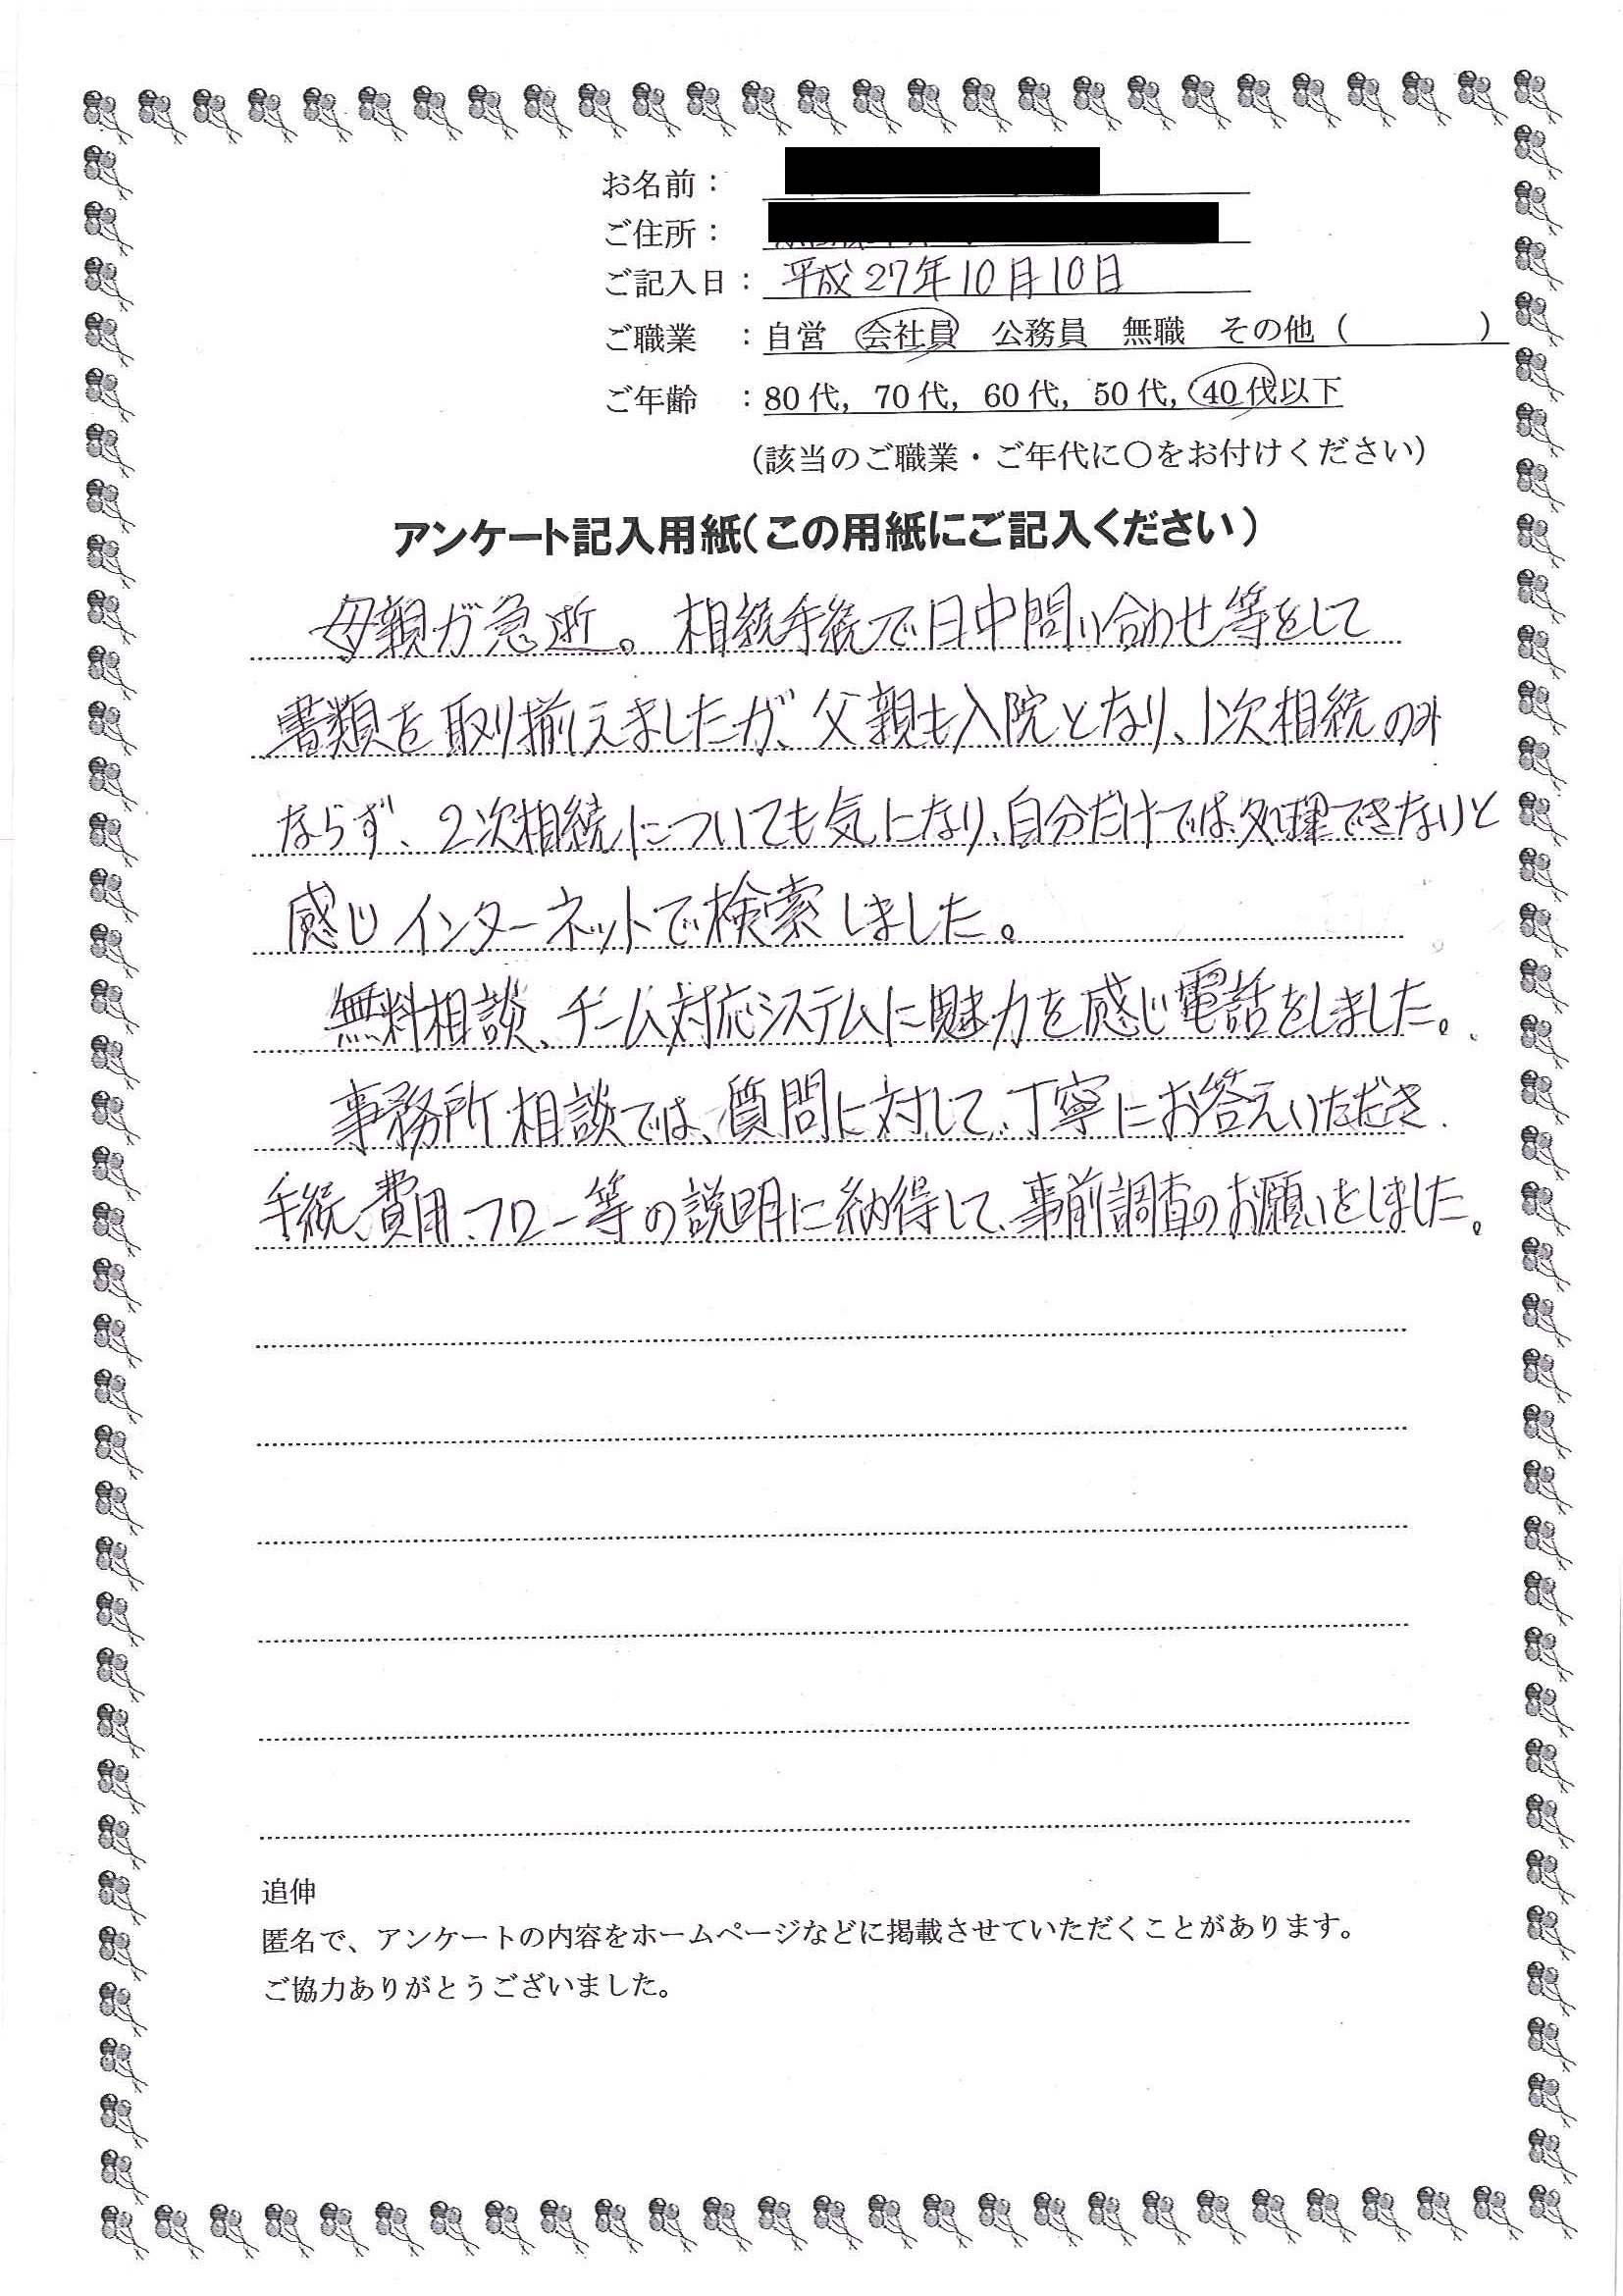 お名前：
ご住所：
ご記入日：平成27年10月10日
ご職業　：自営　会社員　公務員　無職　その他（　　　　）
ご年齢　：80代，70代，60代，50代，40代以下
（該当のご職業・ご年代に〇をお付けください）
アンケート記入用紙（この用紙にご記入ください）
母親が急逝。相続手続で日中問い合わせ等をして
書類を取り揃えましたが、父親も入院となり、1次相続のみ
ならず、2次相続についても気になり、自分だけでは処理できないと
感じインターネットで検索しました。
無料相談、チーム対応システムに魅力を感じ電話をしました。
事務所相談では、質問に対して、丁寧にお答えいただき
手続、費用、フロー等の説明に納得して、事前調査のお願いをしました。
追伸
匿名で、アンケートの内容をホームページなどに掲載させていただくことがあります。
ご協力ありがとうございました。